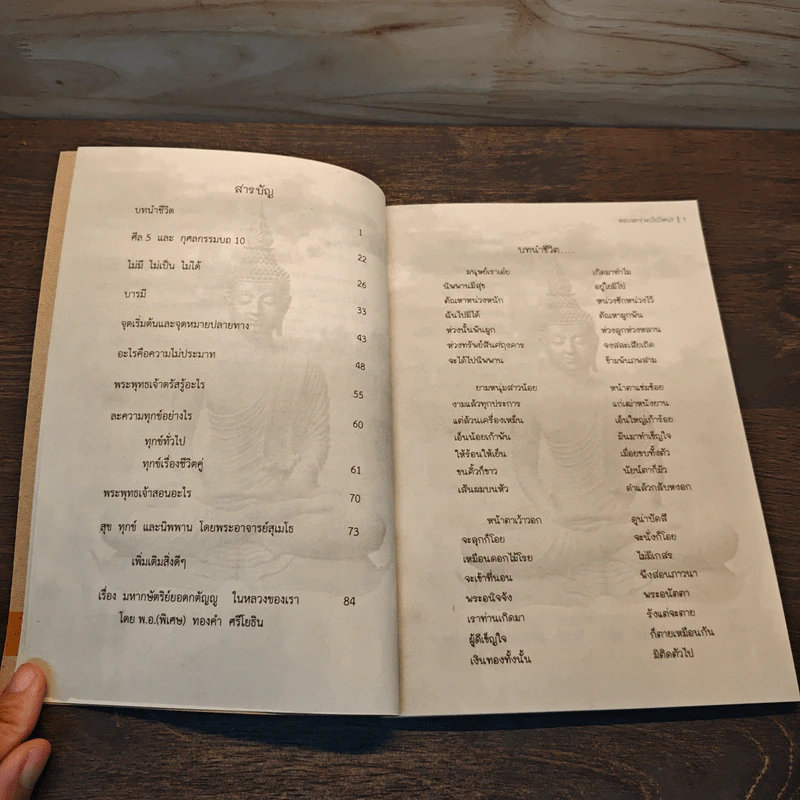 สารบัญ
บทนำชีวิต 1
ศีล 5 และ กุศลกรรมบถ 10 22
ไม่มี ไม่เป็น ไม่ได้ 26
บารมี 33
จุดเริ่มต้นและจุดหมายปลายทาง 43
อะไรคือความไม่ประมาท 48
พระพุทธเจ้าตรัสรู้อะไร 55
ละความทุกข์อย่างไร 60
ทุกข์ทั่วไป
ทุกข์เรื่องชีวิตคู่ 61
พระพุทธเจ้าสอนอะไร 70
สุข ทุกข์ และนิพพาน โดยพระอาจารย์สุเมโธ 73
เพิ่มเติมสิ่งดีๆ
เรื่อง มหากษัตริย์ยอดกตัญญู ในหลวงของเรา 84
โดย พ.อ.(พิเศษ) ทองคำ ศรีโยธิน
บทนำชีวิต....
มนุษย์เราเอ๋ย เกิดมาทำไม
นิพพานมีสุข อยู่ใยมิไป
ตัณหาหน่วงหนัก หน่วงชักหน่วงไว้
ฉันไปมิได้ ตัณหาผูกพัน
ห่วงนั้นพันผูก ห่วงลูกห่วงหลาน
ห่วงทรัพย์สินศฤงคาร จงสละเสียเถิด
จะได้ไปนิพพาน ข้ามพ้นภพสาม
ยามหนุ่มสาวน้อย หน้าตาแช่มช้อย
งามแล้วทุกประการ แก่เฒ่าหนังยาน
แต่ล้วนเครื่องเหม็น เอ็นใหญ่เก้าร้อย
เอ็นน้อยเก้าพัน มันมาทำเข็ญใจ
ให้ร้อนให้เย็น เมื่อยขบทั้งตัว
ขนคิ้วก็ขาว นัยน์ตาก็มัว
เส้นผมบนหัว ดำแล้วกลับหงอก
หน้าตาเว้าวอก ดูน่าบัดสี
จะลุกก็โอย จะนั่งก็โอย
เหมือนดอกไม้โรย ไม่มีเกสร
จะเข้าที่นอน พึงสอนภาวนา
พระอนิจจัง พระอนัตตา
เราท่านเกิดมา รังแต่จะตาย
ผู้ดีเข็ญใจ ก็ตายเหมือนกัน
เงินทองทั้งนั้น มิติดตัวไป